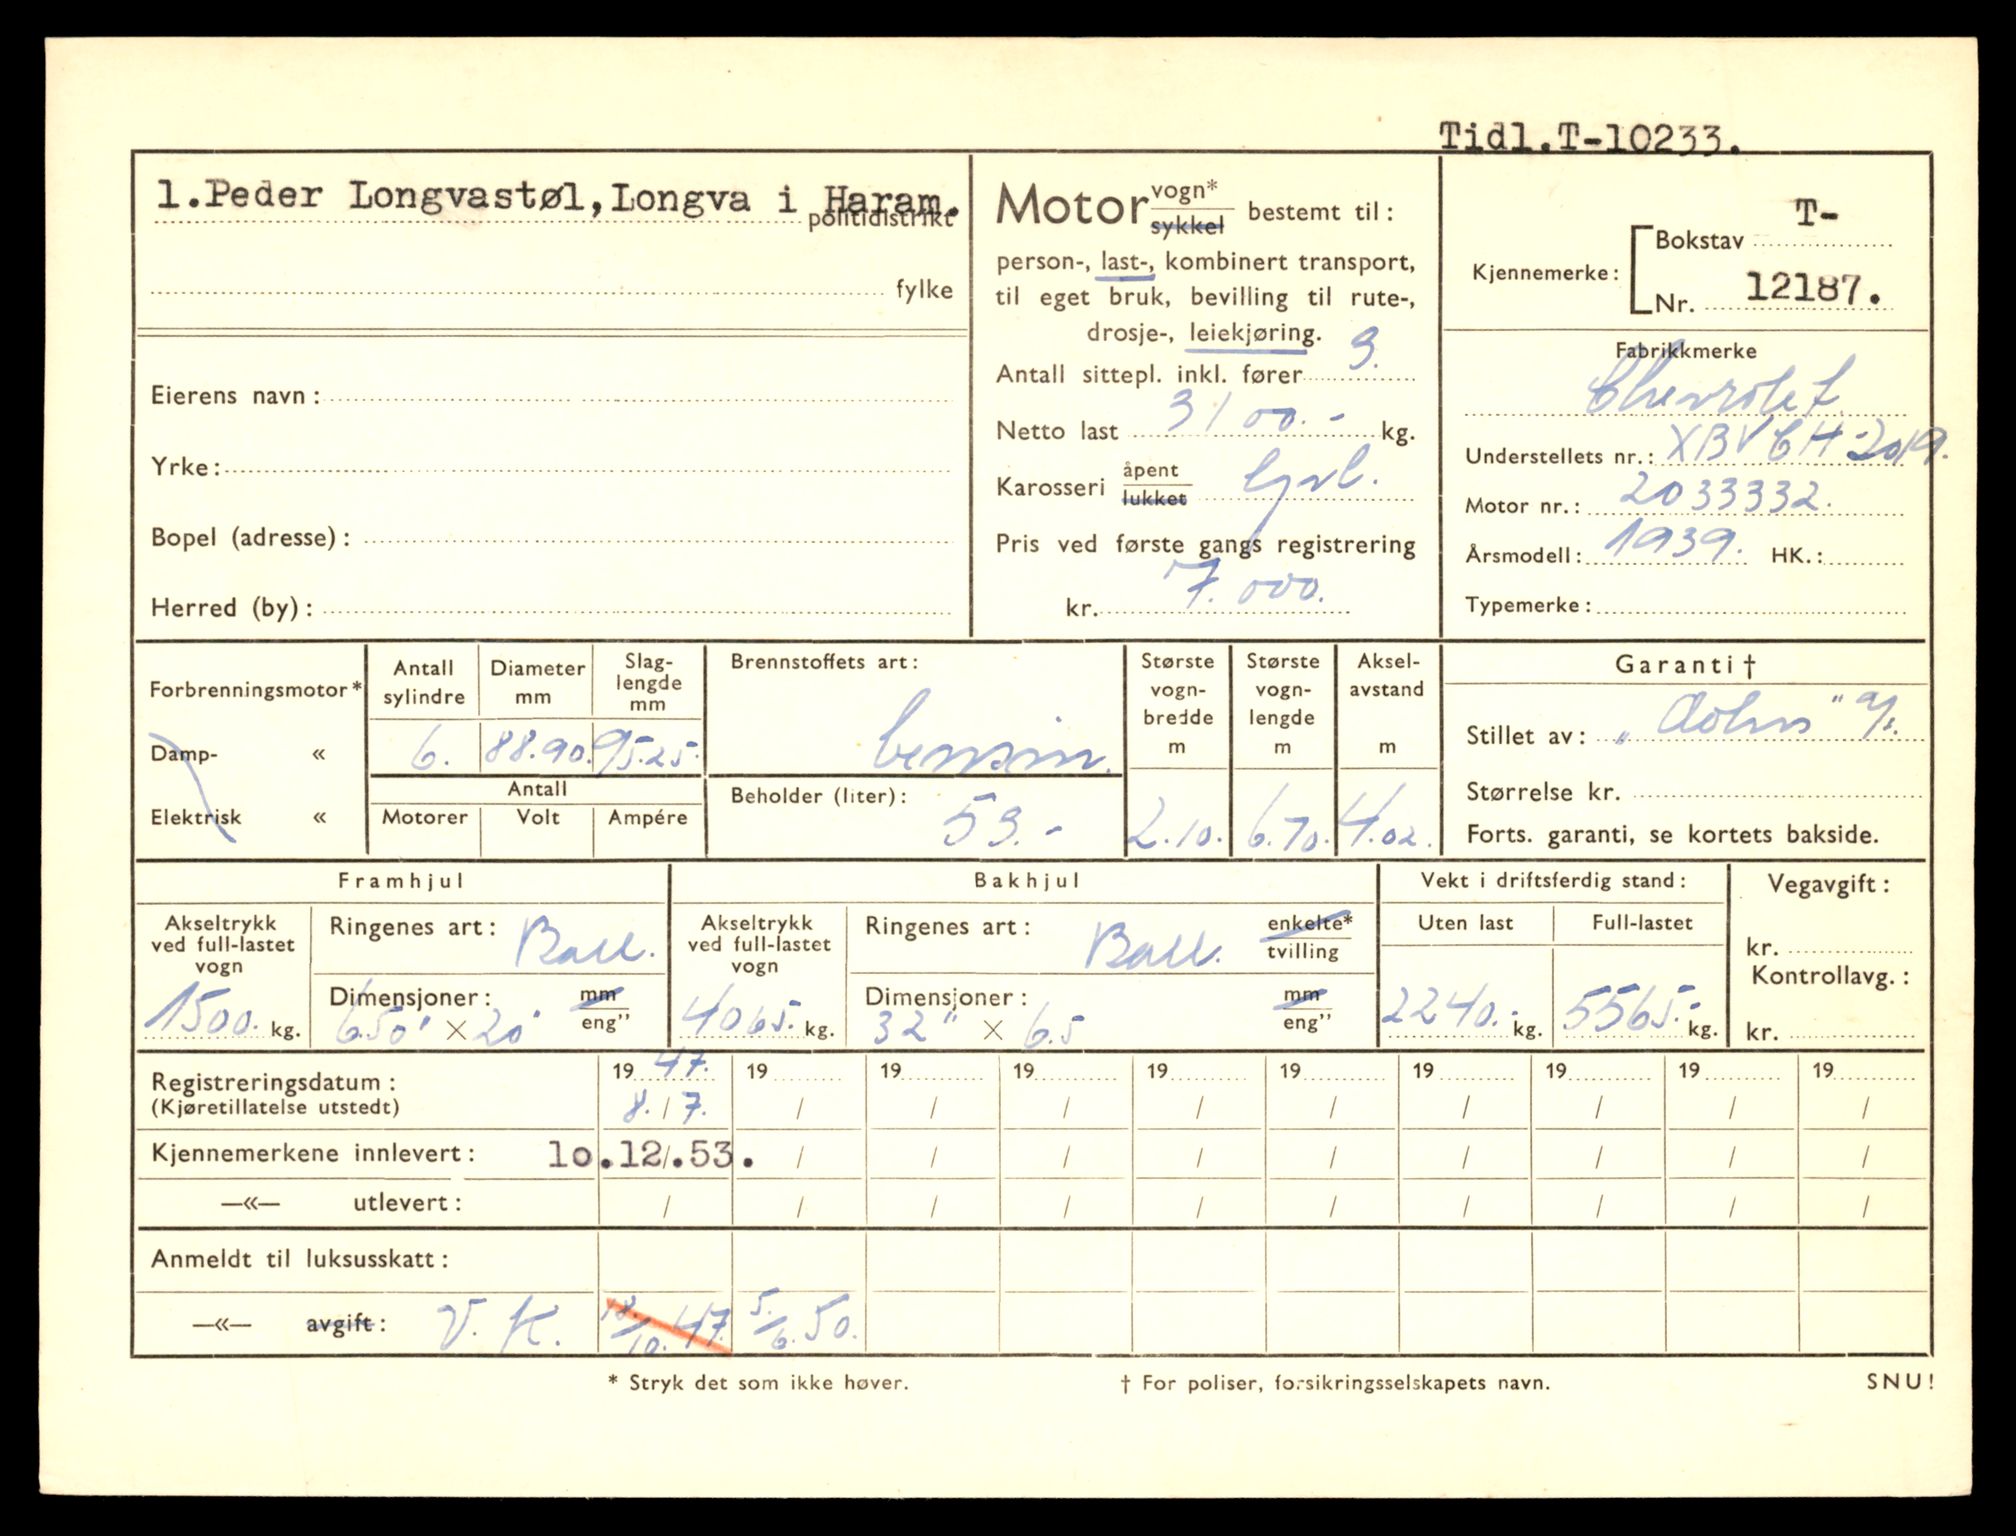 Tidl.T-10233.
1.Peder Longvastøl, Longva i Haram.
politidistrikt
fylke
Eierens navn:
Yrke:
Bopel (adresse):
Herred (by):
Motor vogn* / sykkel bestemt til:
person-, last-, kombinert transport,
til eget bruk, bevilling til rute-,
drosje-, leiekjøring.
Antall sittepl. inkl. fører 3.
Netto last 3100.- kg.
Karosseri åpent / lukket
Pris ved første gangs registrering
kr. 7.000.
Kjennemerke: Bokstav T-
Nr. 12187.
Fabrikkmerke
Chevrolet
Understellets nr.: XBVCH-2019.
Motor nr.: 2033332.
Årsmodell: 1939. HK.:
Typemerke:
Forbrenningsmotor*
Damp- «
Elektrisk «
Antall sylindre 6.
Diameter mm 88.90.
Slag-lengde mm 95.25.
Antall
Motorer Volt Ampére
Brennstoffets art:
bensin.
Beholder (liter): 53.-
Største vogn-bredde m 2.10.
Største vogn-lengde m 6.70.
Aksel-avstand m 4.02.
Garanti †
Stillet av: A/s.
Størrelse kr.
Forts. garanti, se kortets bakside.
Framhjul
Akseltrykk ved full-lastet vogn 1500. kg.
Ringenes art: Ball.
Dimensjoner: mm / eng”
6.50" × 20"
Bakhjul
Akseltrykk ved full-lastet vogn 4065. kg.
Ringenes art: Ball. enkelte* / tvilling
Dimensjoner: mm / eng”
32" × 6.5
Vekt i driftsferdig stand:
Uten last 2240.- kg.
Full-lastet 5565.- kg.
Vegavgift:
kr.
Kontrollavg.:
kr.
Registreringsdatum: 1947. 19 19 19 19 19 19 19 19 19
(Kjøretillatelse utstedt) 8./7. / / / / / / / / /
Kjennemerkene innlevert: 10.12.53. / / / / / / / / /
—«— utlevert: / / / / / / / / / /
Anmeldt til luksusskatt:
—«— avgift: V. K. 18./10.47. 5./6.50.
* Stryk det som ikke høver.
† For poliser, forsikringsselskapets navn.
SNU!